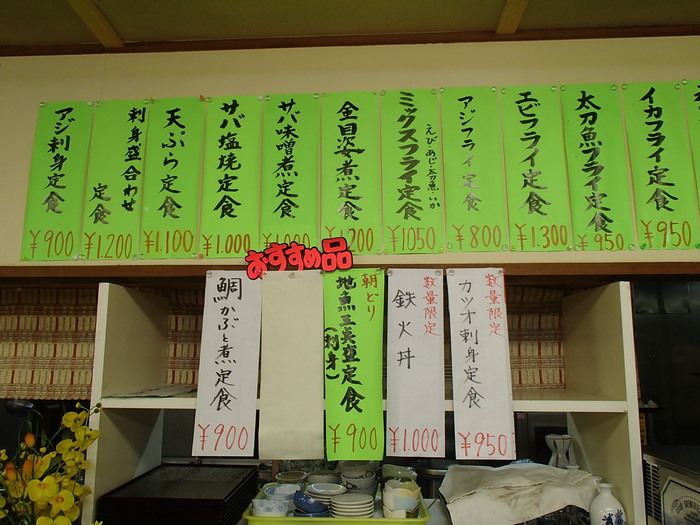 イカフライ定食
¥950
太刀魚フライ定食
¥950
エビフライ定食
¥1.300
アジフライ定食
¥800
ミックスフライ定食
えび・あじ・太刀魚・いか
¥1.050
金目姿煮定食
サバ味噌煮定食
サバ塩焼定食
¥1.000
天ぷら定食
¥1.100
刺身盛合わせ
定食
¥1.200
アジ刺身定食
¥900
おすすめ品
数量限定
カツオ刺身定食
¥950
数量限定
鉄火丼
¥1.000
朝どり
地魚三点盛定食
(刺身)
¥900
鯛かぶと煮定食
¥900